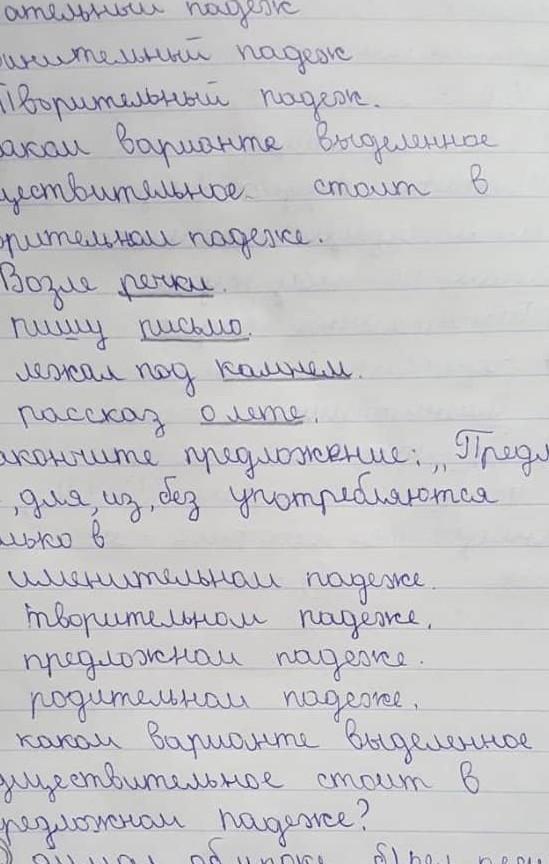 ательный падеж
инительный падеж
Творительный падеж.
каком варианте выделенное
ществительное стоит в
орительном падеже.
Возле речки.
пишу письмо.
лежал под камнем.
рассказ о лете.
акончите предложение: „Предл
, для, из, без употребляются
лько в
именительном падеже.
творительном падеже.
предложном падеже.
родительном падеже.
каком варианте выделенное
уществительное стоит в
редложном падеже?